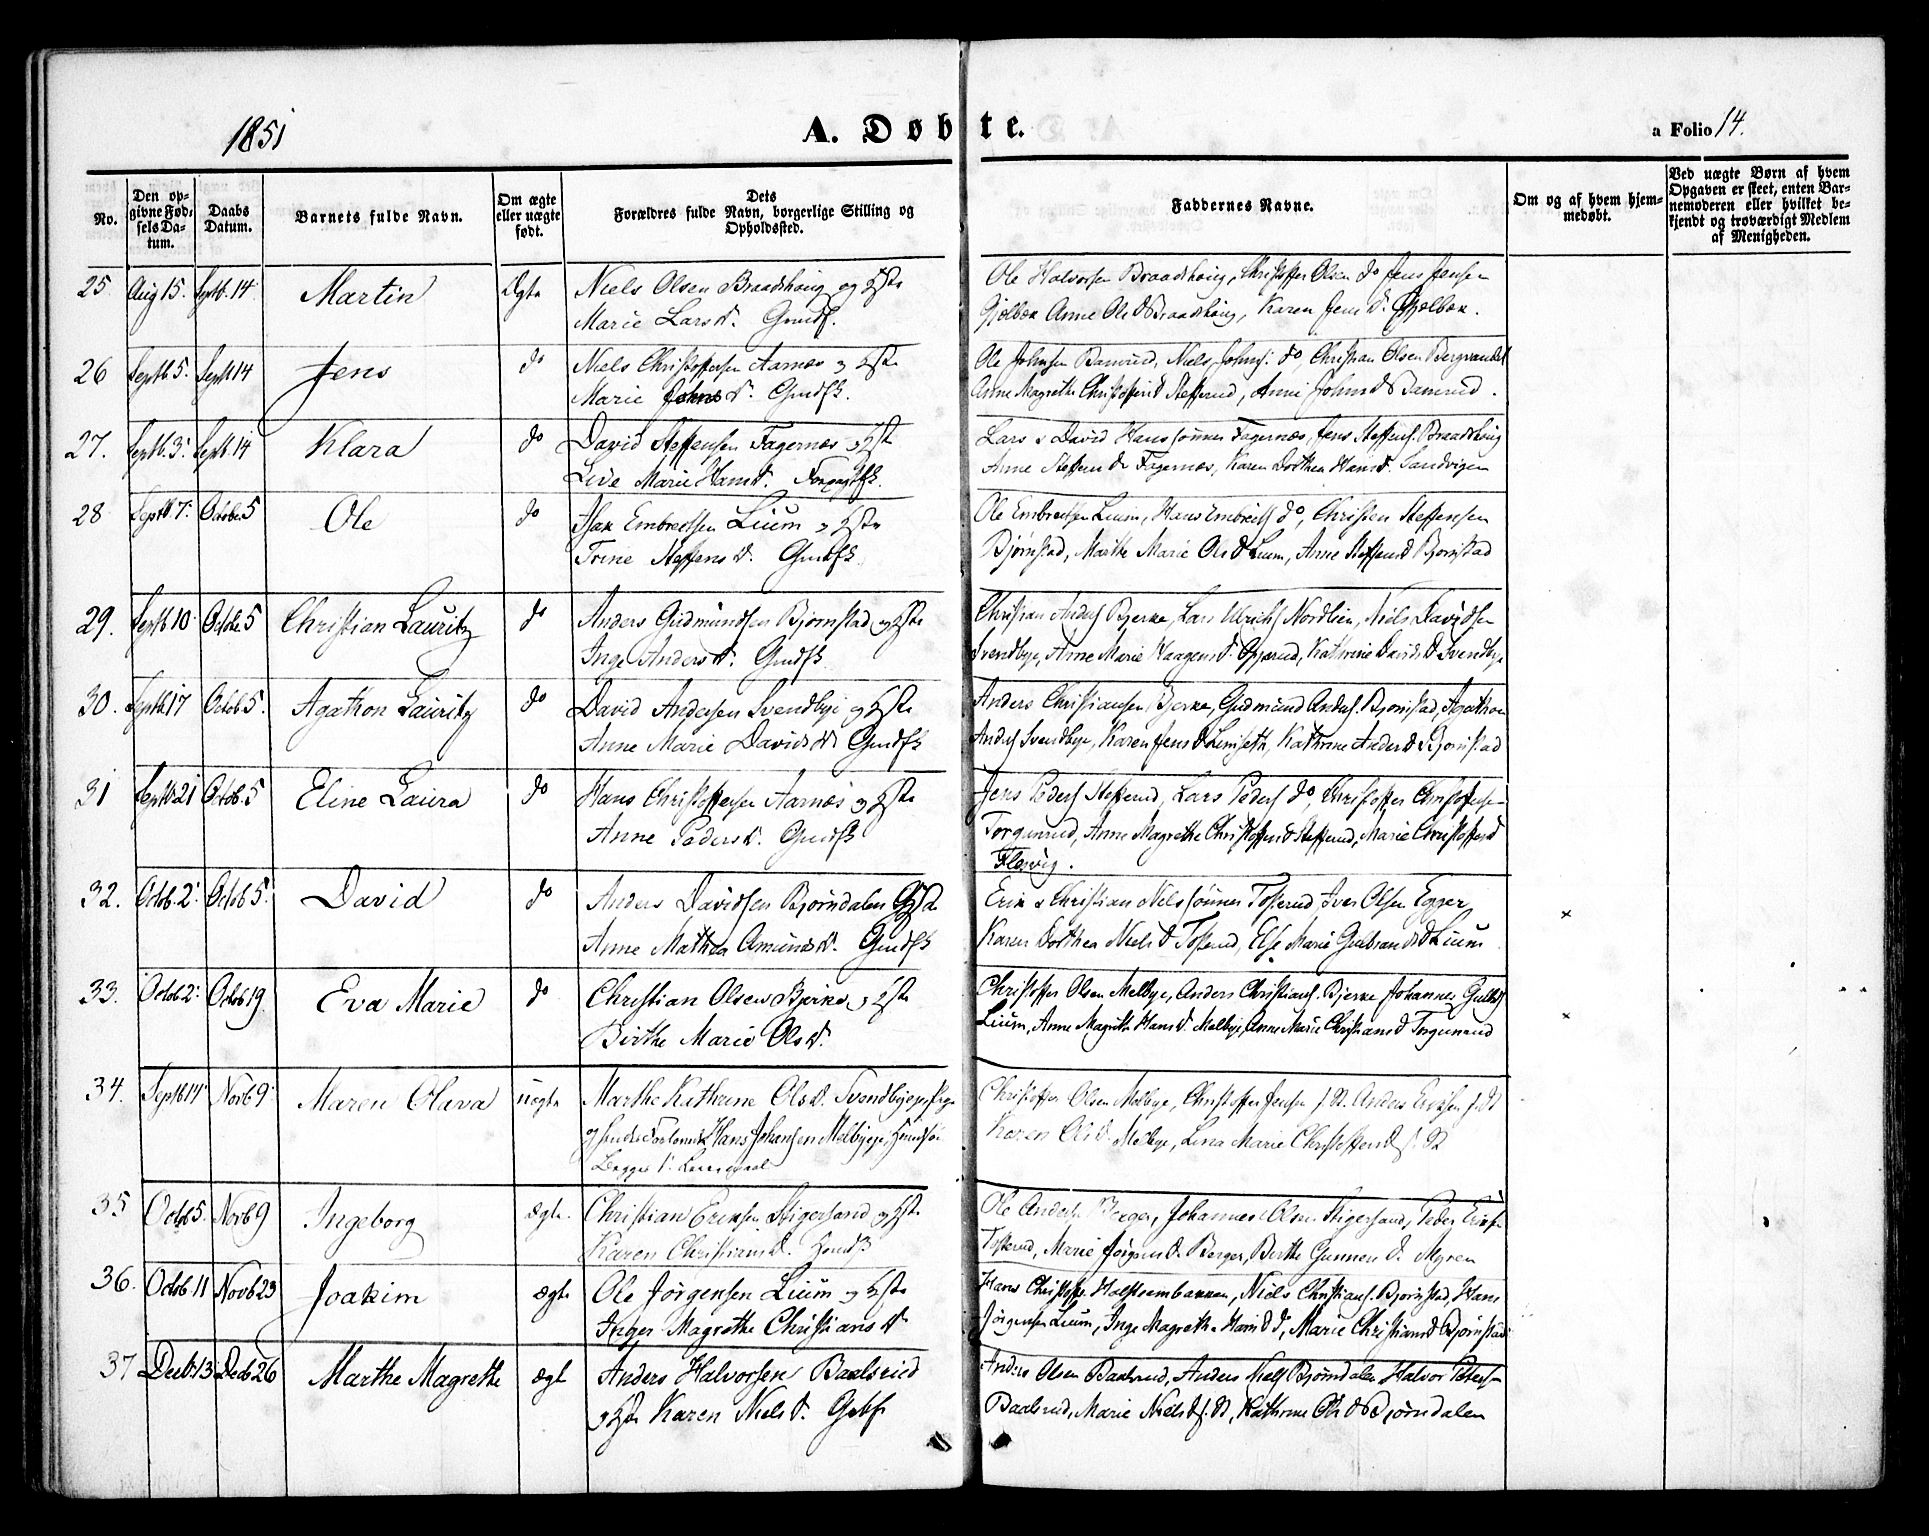 1851
A. Døbte.
a Folio 14.
No.
Den opgivne Fødsels Datum.
Daabs Datum.
Barnets fulde Navn.
Om ægte eller uægte født.
Dets Forældres fulde Navn, borgerlige Stilling og Opholdssted.
Faddernes Navne.
Om og af hvem hjemmedøbt.
Ved uægte Børn af hvem Opgaven er skeet, enten Barnemoderen eller hvilket bekjendt og troværdigt Medlem af Menigheden.
25 Aug 15. Septb. 14. Martin Ægte Niels Olsen Braadshoug og Hste
Marie Larsd. Gmdf.
Ole Halvorsen Braadshoug, Christoffer Olsen do Jens Jensen
Gjølbæk Anne Olsd Braadshoug, Karen Jensd. Gjølbæk.
26 Septb. 5. Septb 14 Jens do Niels Christoffersen Aarnæs og Hste
Marie Johnsd. Gmdfk.
Ole Johnsen Bamrud, Niels Johns: do, Christian Olsen
Anne Magrethe Christoffersd Stefferud, Anne Johnsd Bamrud.
27. Septb. 3. Septb 14 Klara do David Steffensen Fagernæs og Hste
Live Marie Hansd.
Lars & David Hanssønner Fagernæs, Jens Steffens. Braadshoug
Anne Steffensd Fagernæs, Karen Dorthea Hansd. Sandvigen
28 Septb. 7. Octobe. 5 Ole do Isak Embretsen Lium og Hste
Trine Steffensd. Gmdfk.
Ole Embretsen Lium, Hans Embrets do, Christen Steffensen
Bjørnstad, Marthe Marie Olsd Lium, Anne Steffensd Bjørnstad
29. Septb 10. Octobe 5 Christian Lauritz do Anders Gudmundsen Bjørnstad og Hste
Inge Andersd. Gmdfk.
Christian Anders Bjerke, Lars Ulrichs Nordlien, Niels Davidsen
Svendbye, Anne Marie Haagensd. Opperud, Kathrine Davidsd Svendbye
30. Septb. 17 Octob 5. Agathon Lauritz do David Andersen Svendbye og Hste
Anne Marie Davidsd. Gmdfk
Anders Christiansen Bjerke, Gudmund Anders. Bjørnstad, Agathon
Anders Svendbye, Karen Jensd, Kathrine Andersd Bjørnstad
31 Septb 21 Octob. 5 Eline Laura do Hans Christoffersen Aarnæs og Hste
Anne Pedersd. Gmdfk
Jens Peders Stefferud, Lars Peders do, Christoffer Christoffersen
Torgunrud, Anne Magrethe Christoffersd Stefferud, Marie Christoffersd
Flesvig.
32. Octob. 2. Octob 5. David do Anders Davidsen Bjørndalen
Anne Mathea Amundsd. Gmdfk
Erik & Christian Nielssønner Tosterud, Iver Olsen Egger,
Karen Dorthea Nielsd Tosterud, Else Marie Gulbrandsd Lium
33. Octob 2. Octob 19. Eva Marie do Christian Olsen Bjerke og Hste
Birthe Marie Olsd.
Christoffer Olsen Melbye, Anders Christians. Bjerke Johannes Gulbs
Lium, Anne Magrethe Hansd. Melbye, Anne Marie Christiansd Torgunrud
34. Septb 14. Novb 9. Maren Olava uægte Marthe Kathrine Olsd. Svendbyeeje Pige
og Hans Johansen Melbyeeje,
Begges
Christoffer Olsen Melbye, Christoffer Jensen s. St. Anders Eriksen s. St
Karen Olsd. Melbye, Lena Marie Christoffersd s. St
35 Octob 5. Novb 9 Ingeborg ægte. Christian Eriksen Stigersand og Hste
Karen Christiansd.
Ole Anders Berger, Johannes Olsen Stigersand, Peder Eriks
Tosterud, Marie Jørgensd. Berger, Berthe Gunnersd. Myren
36. Octob. 11 Novb 23 Joakim ægte Ole Jørgensen Lium og Hste
Inger Magrethe Christiansd
Hans Christoffs. Holstembakken, Niels Christians. Bjørnstad, Hans
Jørgensen Lium, Inge Magrethe Hansd, Marie Christiansd Bjørnstad
37 Decb 13 Decb 26 Marthe Magrethe ægte Anders Halvorsen Baalsrud
og Hste Karen Nielsd.
Anders Olsen Baalsrud, Anders Niels Bjørndalen Halvor Peters
Baalsrud, Marie Nielsd s. St, Kathrine Olsd Bjørndalen